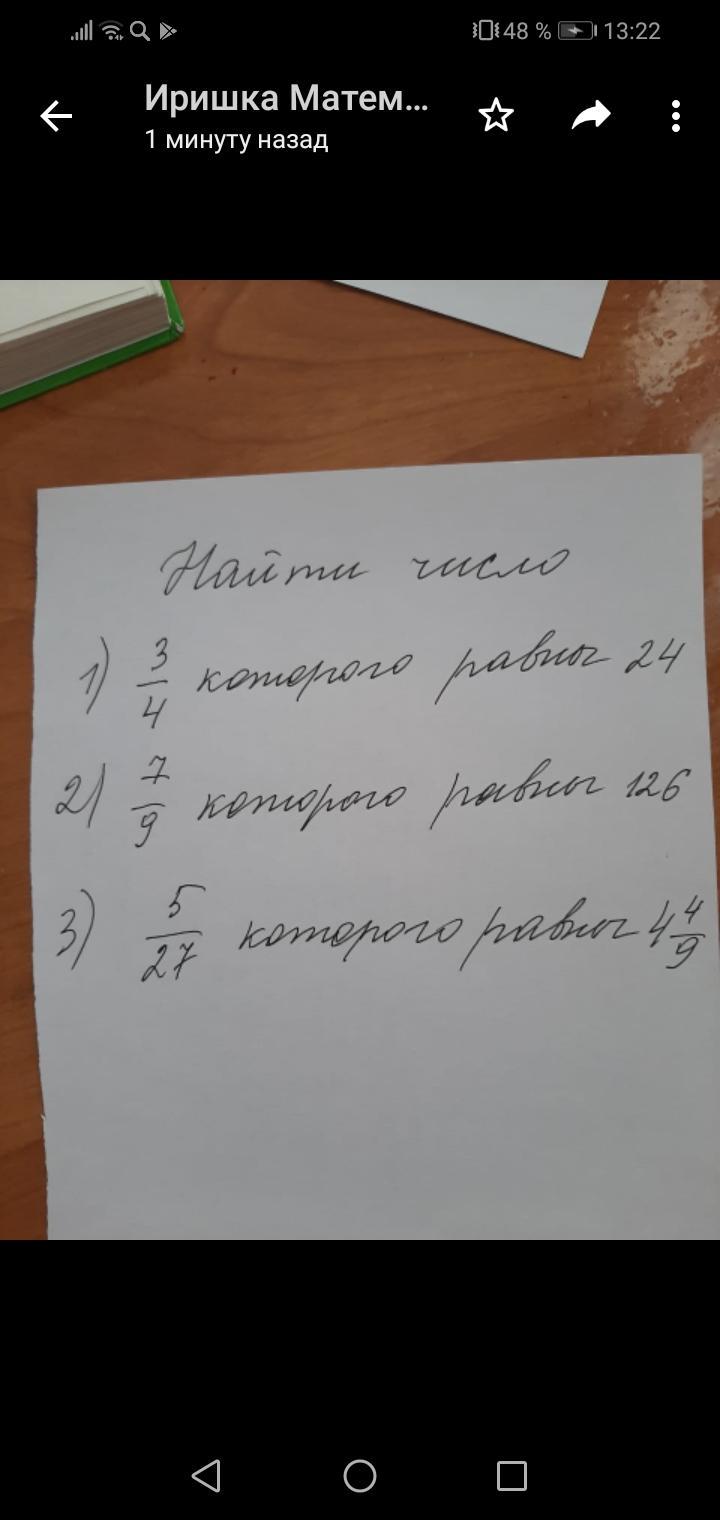 48 % 13:22
Иришка Матем...
1 минуту назад
Найти число
1) 3/4 которого равны 24
2) 7/9 которого равны 126
3) 5/27 которого равны 4 4/9